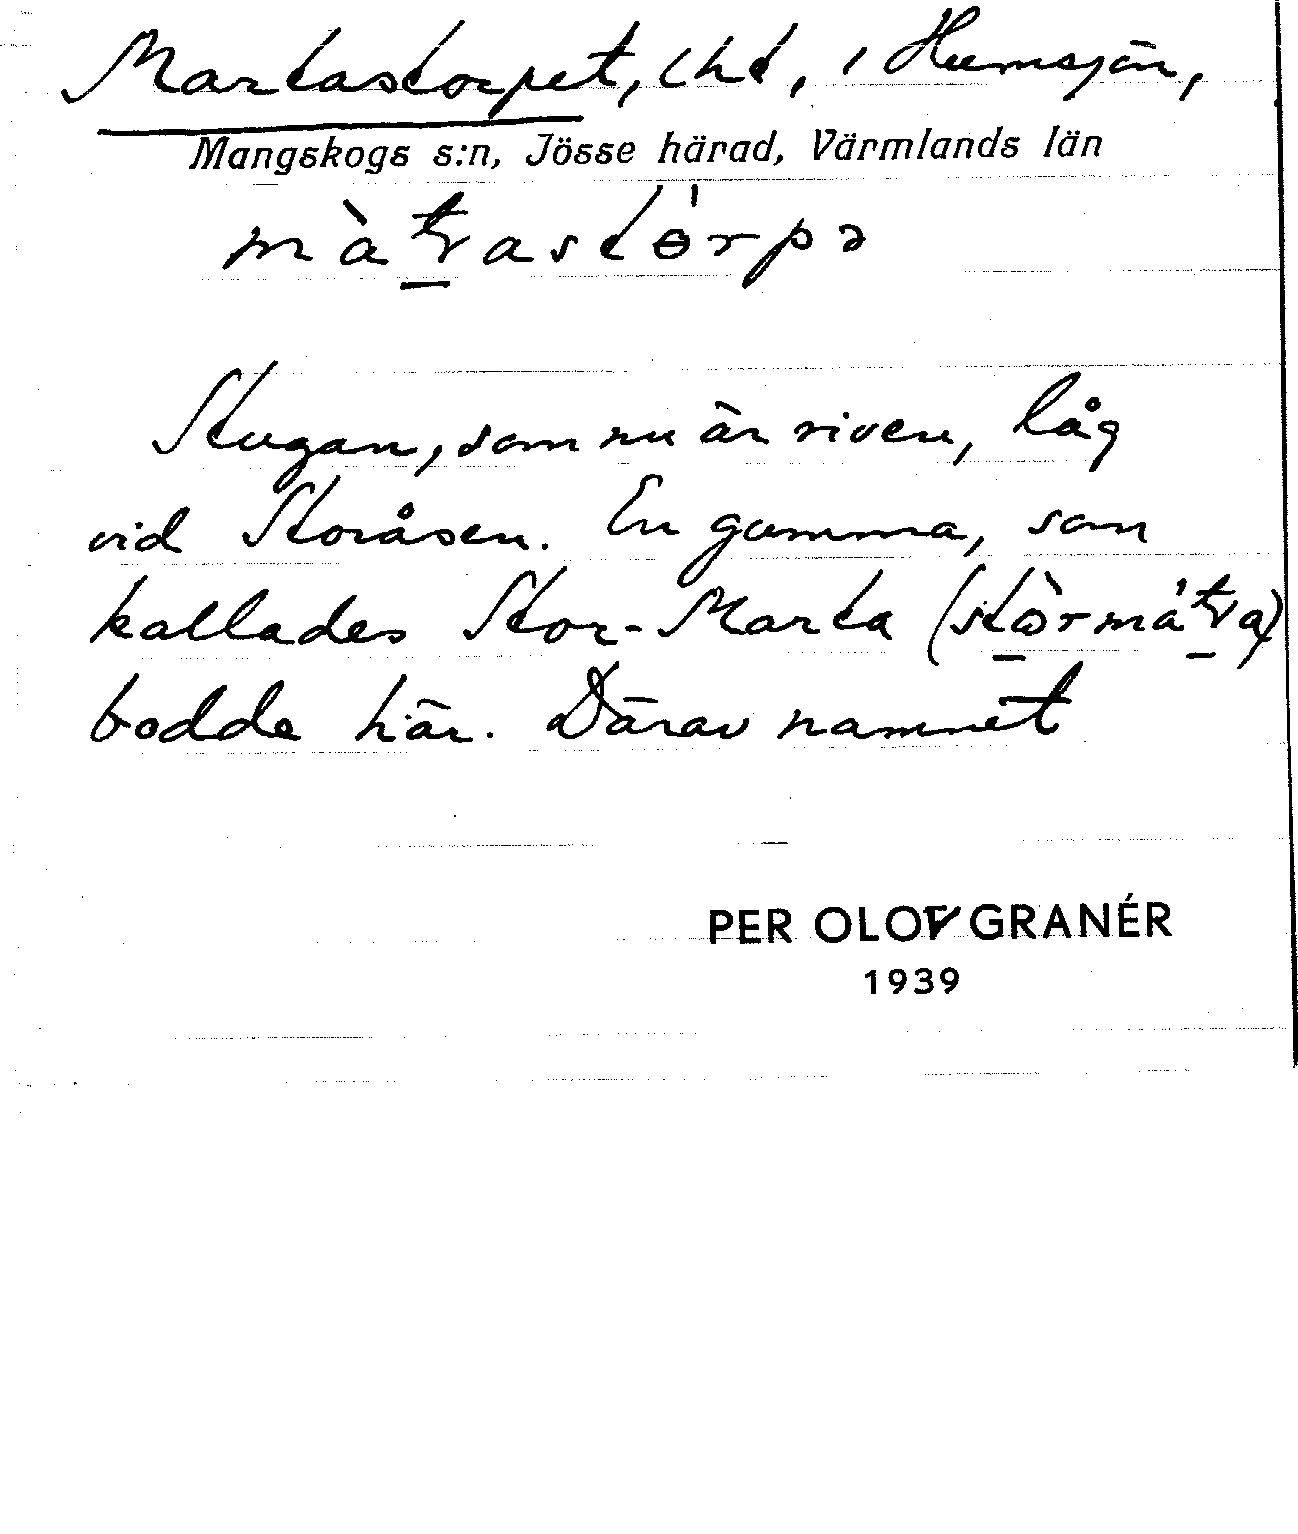 Martastorpet, lht, i Humsjön,
Mangskogs s:n, Jösse härad, Värmlands län
Stugan, som nu är riven, låg
vid Storåsen. En gumma, som
kallades Stor-Marta
bodde här. Därav namnet
PER OLOV GRANÉR
1939